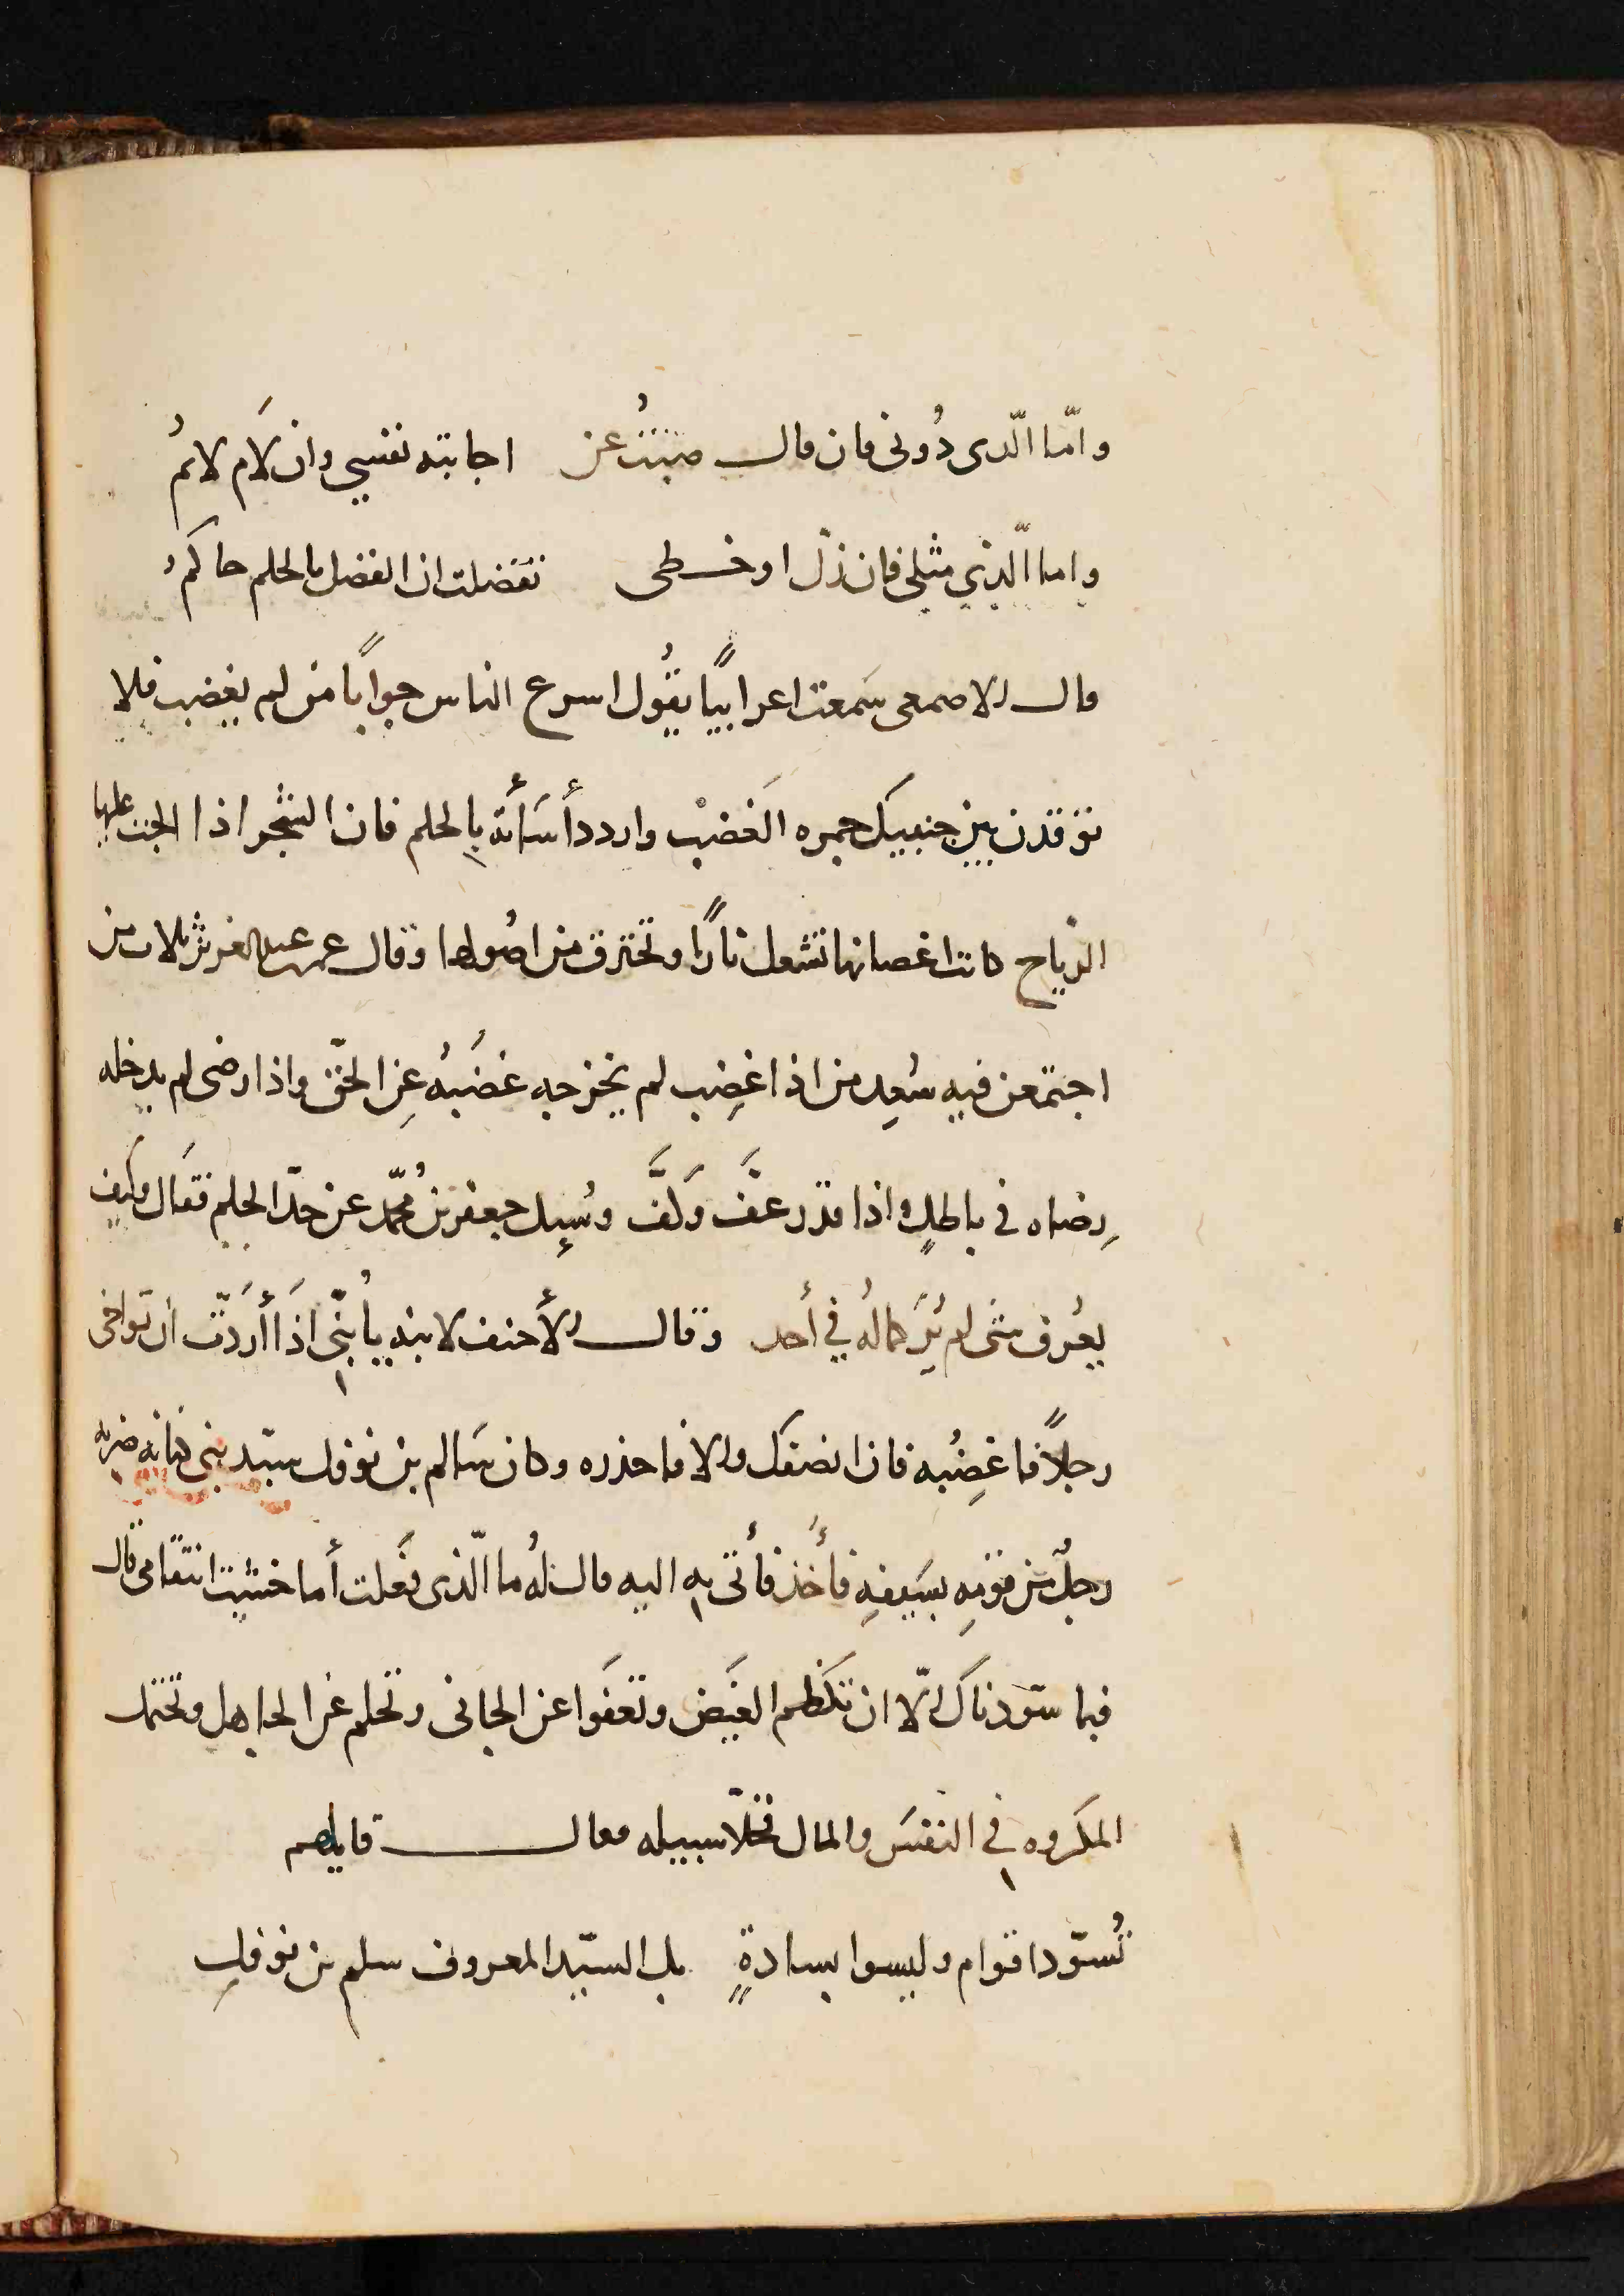 وامّا الّدى دُونى فان قال صنتُ عن اجابته نفسى وان لَام لائمُ
واما الّذي مثلى فان زلّ او خطى تفضلت ان الفضل بالحلم حاكمُ
قال الاصمعى سَمعت اعرابيًّا يقُول اسرع الناس جوابًا من لم يغضب فلا
توقدن بين جنبيك جمره الغَضبْ واردد أسَأته بالحلم فان الشجر اذا الجت عليها
الرياح كانت اغصانها تشعل نارًا وتحترق من اصُولها وقال عمر بن عبد العزيز ثلاث من
اجتمعن فيه سُعِد من اذا غضِب لم يخرجه غضَبهُ عِن الحقّ واذا رضى لم يدخله
رِضاه فى باطلٍ واذا قدر عفَّ وَكَفَّ وسُئِيل جعفر بن مُحمّد عن حدّ الحلم فقَال وكَيف
يعُرف شى لم يُرَ كمالهُ في أحد وقال الأحنف لابنه يا بُنّى اذَا أرَدتّ ان تواخى
رجلاً فاغضِبُه فان انصفك والا فاحذره وكان سَالم بن نوفل سيّد بنى كنانه ضربه
رجلٌ من قومِهِ بسَيفِهِ فأُخذ فأُتى به اليه قال لهُ ما الّذى فعَلت أما خشيت انتقامى قال
فيما سوّدناكَ الّا ان تكَظم الغَيض وتعفَوا عن الجانى وتحلم عن الجاهل وتحتمل
المكروه فى النفسَ والمال فخلّا سبيله فقال قايلهم
تُسوّد اقوام وليسوا بسادةٍ بل السيّد المعروف سلم بن نوفلِ